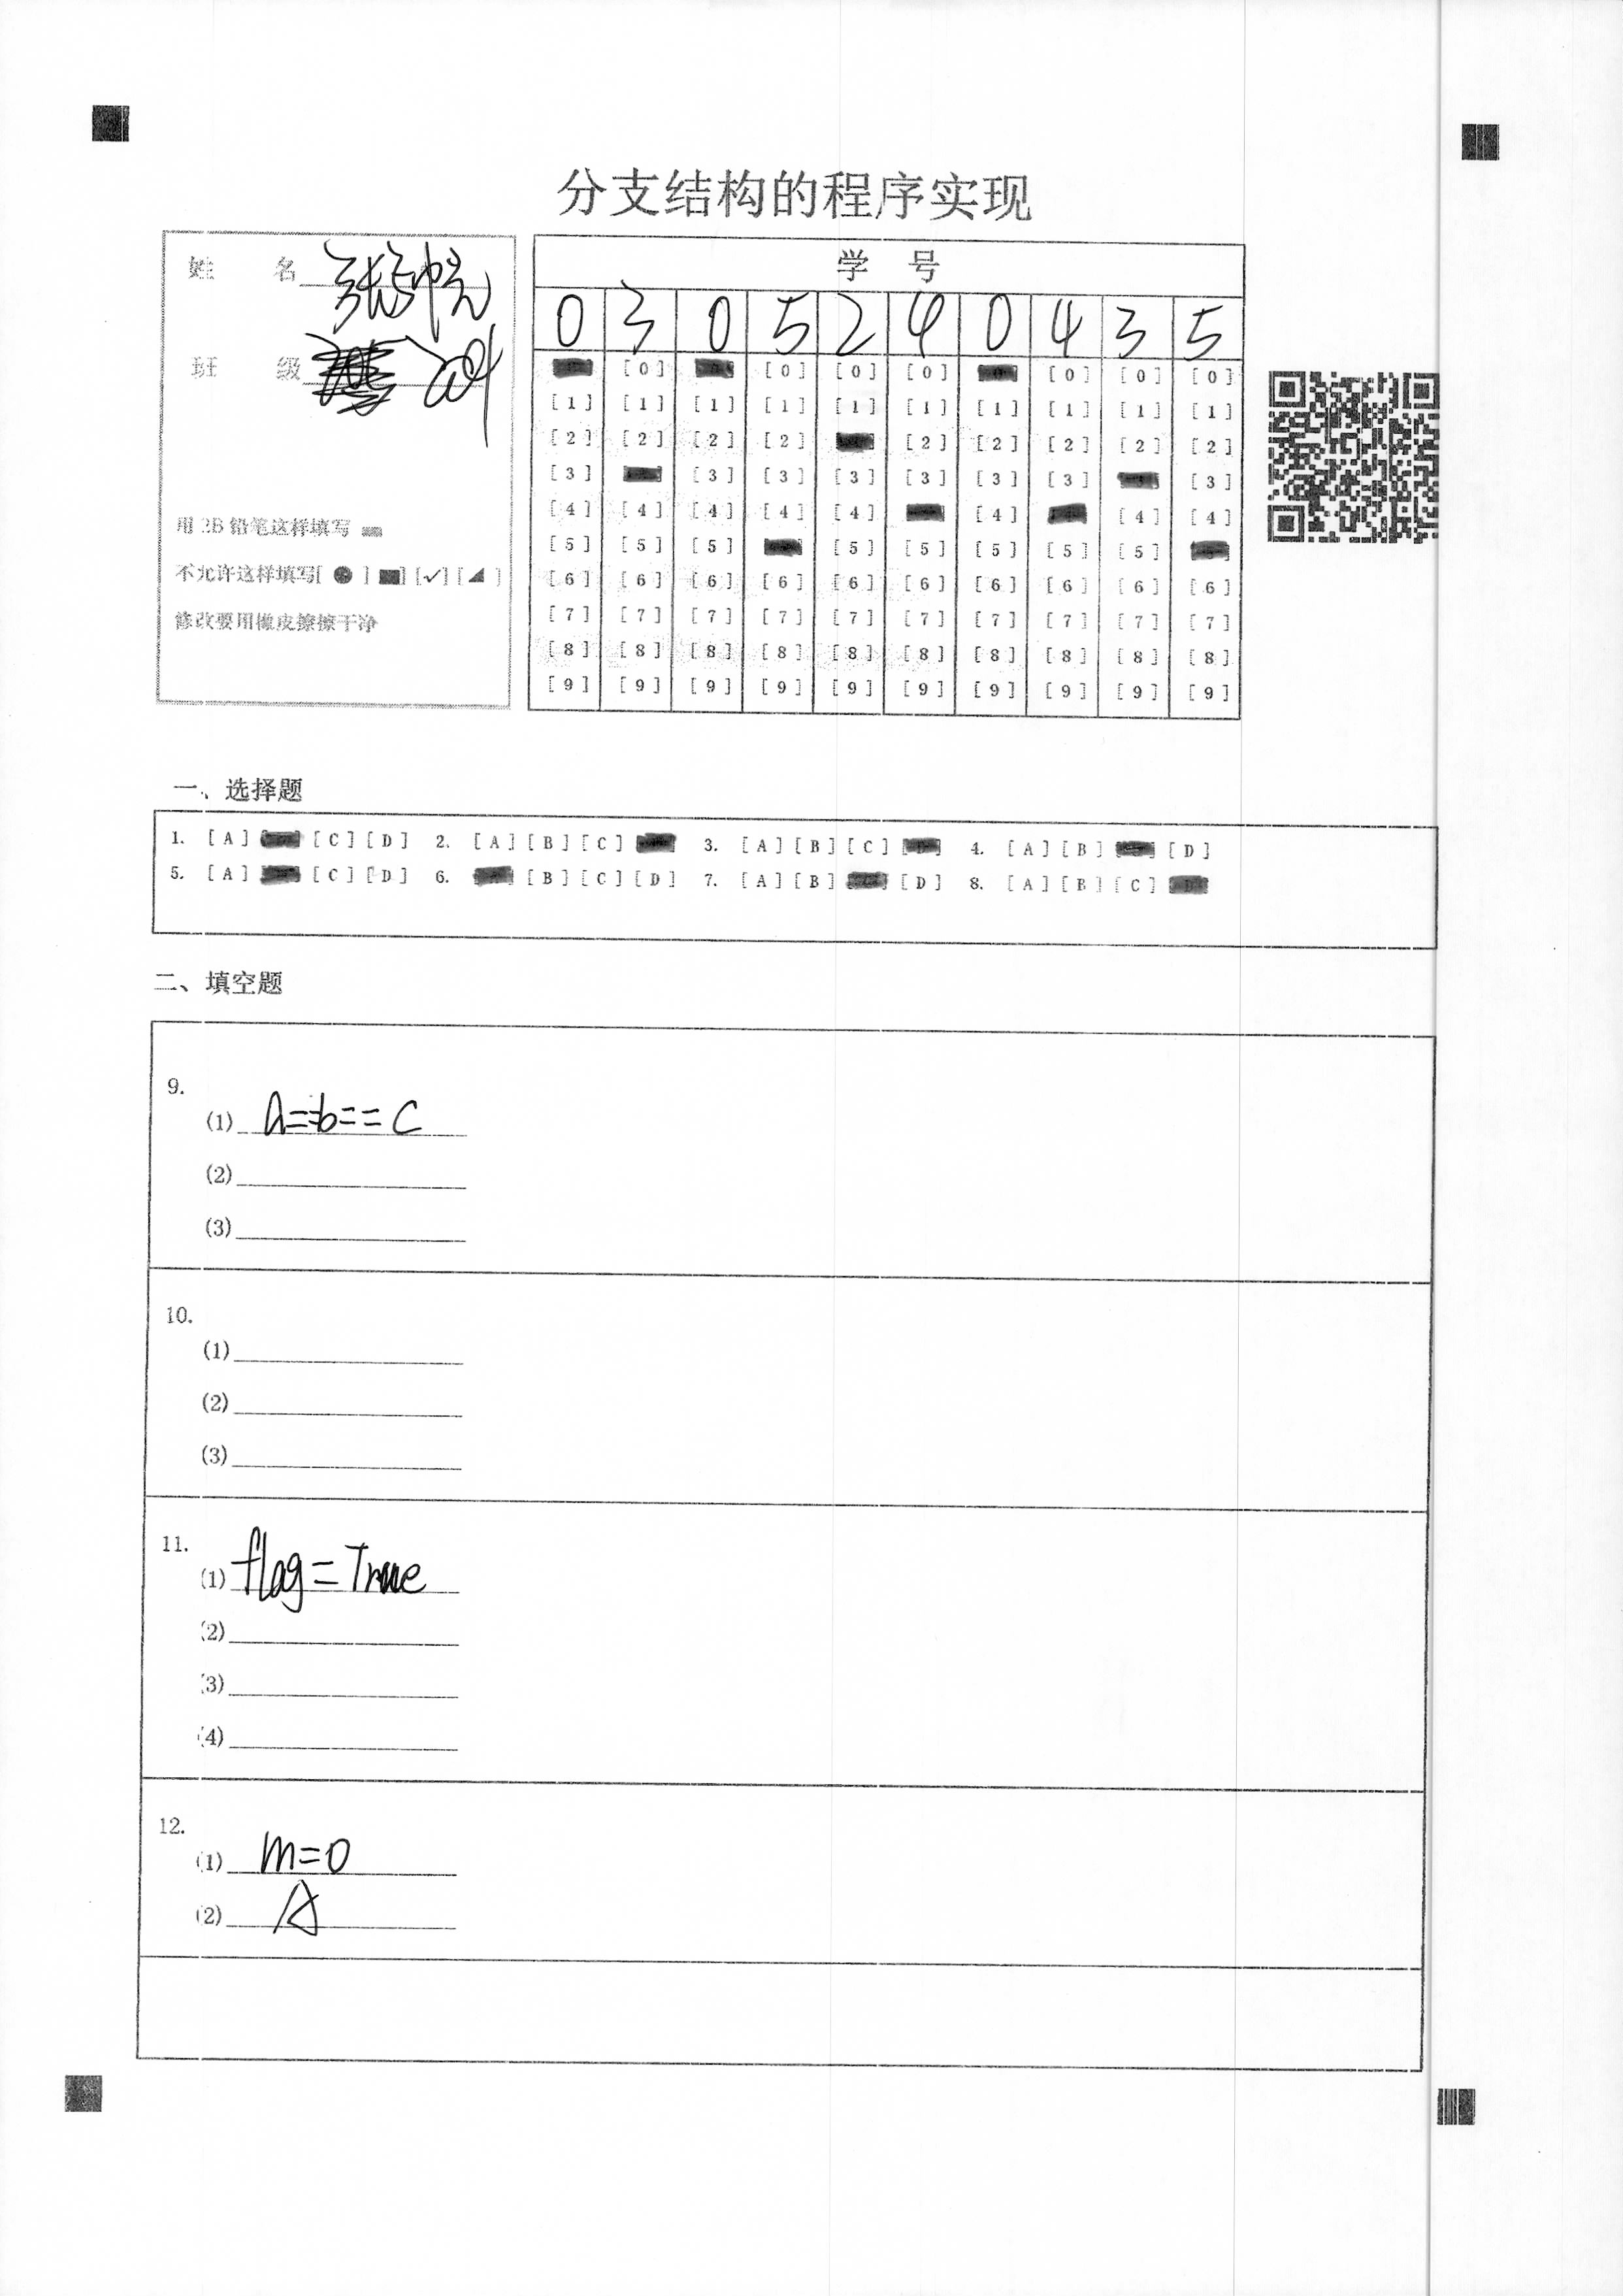 分支结构的程序实现
姓 名 张
班 级
用 2B 铅笔这样填写
不允许这样填写[ ● ] [■] [✓] [◢ ]
修改要用橡皮擦擦干净
学 号
0 3 0 5 2 4 0 4 3 5
[0] [0] [0] [0] [0] [0] [0]
[1] [1] [1] [1] [1] [1] [1] [1] [1] [1]
[2] [2] [2] [2] [2] [2] [2] [2] [2]
[3] [3] [3] [3] [3] [3] [3] [3]
[4] [4] [4] [4] [4] [4] [4] [4]
[5] [5] [5] [5] [5] [5] [5] [5]
[6] [6] [6] [6] [6] [6] [6] [6] [6] [6]
[7] [7] [7] [7] [7] [7] [7] [7] [7] [7]
[8] [8] [8] [8] [8] [8] [8] [8] [8] [8]
[9] [9] [9] [9] [9] [9] [9] [9] [9] [9]
一、选择题
1. [A] [C] [D] 2. [A] [B] [C] 3. [A] [B] [C] 4. [A] [B] [D]
5. [A] [C] [D] 6. [B] [C] [D] 7. [A] [B] [D] 8. [A] [B] [C]
二、填空题
9.
(1) a==b==c
(2)
(3)
10.
(1)
(2)
(3)
11.
(1) flag=True
(2)
(3)
(4)
12.
(1) m=0
(2) A